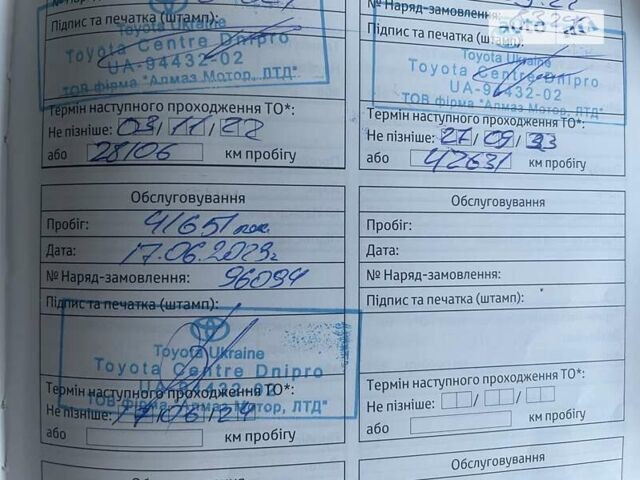 Підпис та печатка (штамп):
Toyota Ukraine
Toyota Centre Dnipro
UA-94432-02
ТОВ фірма "Алмаз Мотор, ЛТД"
Термін наступного проходження ТО*:
Не пізніше: 03/11/22
або 28106 км пробігу
Підпис та печатка (штамп):
Toyota Ukraine
Toyota Centre Dnipro
UA-94432-02
ТОВ фірма "Алмаз Мотор, ЛТД"
Термін наступного проходження ТО*:
Не пізніше: 27/09/23
або 42631 км пробігу
Обслуговування
Пробіг: 41651
Дата: 17.06.2023г
№ Наряд-замовлення: 96094
Підпис та печатка (штамп):
Toyota Ukraine
Toyota Centre Dnipro
UA-94432-02
ТОВ фірма "Алмаз Мотор, ЛТД"
Термін наступного проходження ТО*:
Не пізніше: 17/06/24
або км пробігу
Обслуговування
Пробіг:
Дата:
№ Наряд-замовлення:
Підпис та печатка (штамп):
Термін наступного проходження ТО*:
Не пізніше: / /
або км пробігу
Обслуговування
Обслуговування